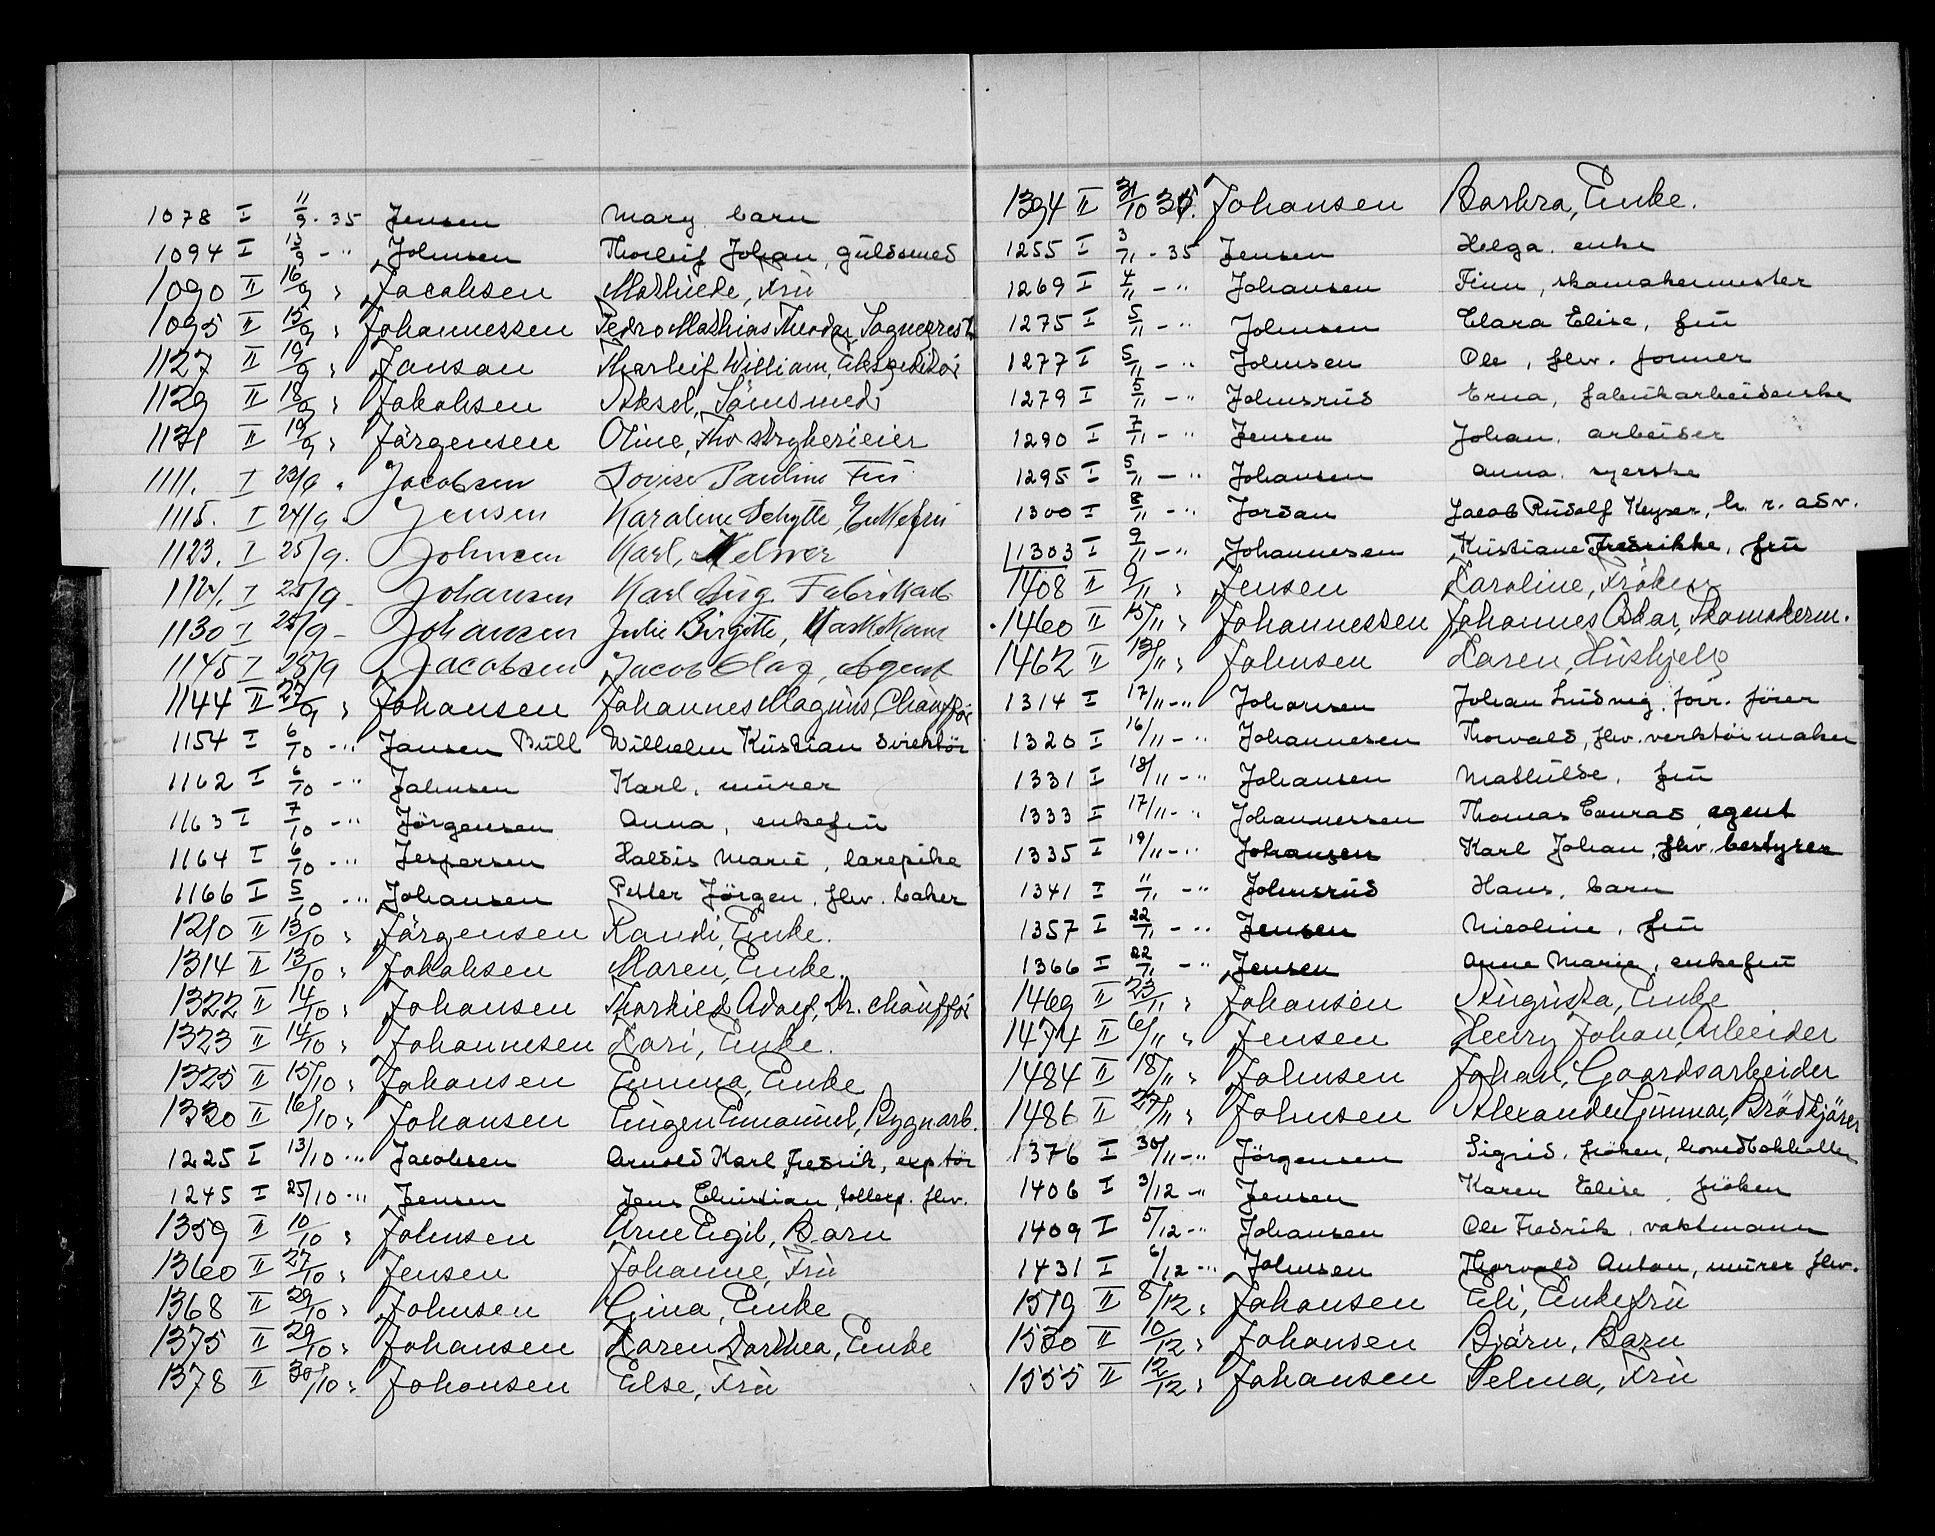 1078 I 11/9 - 35 Jensen Mary barn
1094 I 13/9 - " Johnsen Thorleif Johan, guldsmed
1090 II 16/9 " Jacobsen Mathilde, Frü
1095 II 15/9 " Johannessen Pedro Mathias Theodor,
1127 II 19/9 " Janson Thorleif William, Ekspeditör
1129 II 18/9 " Jakobsen Aksel,
1131 II 19/9 " Jörgensen Oline, Fhv strykerieier
1111. I 23/9 " Jacobsen Lovise Pauline Frü
1115. I 24/9 - Jensen Karoline Schytte, Enkefrü
1123. I 25/9. Johnsen Karl,
1124. I 25/9 - Johansen Karl Aug. Fabrikarb
1130 I 28/9 - Johansen Julie Birgitte,
1145 I 28/9 Jacobsen Jacob Olaf, Agent
1144 II 27/9 " Johansen Johannes Magnus, Chaufför
1154 I 6/10 - " Jansen Büll Wilhelm Kristian direktör
1162 I 6/10 - " Johnsen Karl, mürer
1163 I 7/10 - " Jörgensen Anna, enkefrü
1164 I 6/10 - " Jespersen Haldis Marie, larepike
1166 I 5/10 - " Johansen Petter Jörgen, fhv. baker
1210 II 13/10 " Jörgensen Randi, Enke.
1314 II 13/10 " Jakobsen Maren, Enke.
1322 II 14/10 " Johansen Thorkild Adolf, Dr. chaufför
1323 II 14/10 " Johannesen Kari, Enke.
1325 II 15/10 " Johansen Emma, Enke
1330 II 16/10 " Johansen Eugen Emanuel, Bygn arb.
1225 I 13/10 " Jacobsen Arnold Karl Fredrik, exp.tör
1245 I 25/10 " Jensen Jens Christian, tollerp. fhv.
1359 II 10/10 " Johnsen Arne Egil, Barn
1360 II 27/10 " Jensen Johanne, Frü
1368 II 29/10 " Johnsen Gina, Enke
1375 II 29/10 " Johansen Karen Dorthea, Enke
1378 II 30/10 " Johansen Else, Frü
1394 II 31/10 35. Johansen Barbra, Enke.
1255 I 3/11 - 35 Jensen Helga. enke
1269 I 4/11 - " Johansen Finn, skomakermester
1275 I 5/11 - " Johnsen Clara Elise, frü
1277 I 5/11 - " Johnsen Ole, fhv. former
1279 I 5/11 - " Johnsrud Erna, fabrikarbeiderske
1290 I 7/11 - " Jensen Johan. arbeider
1295 I 5/11 - " Johansen Anna. syerske
1300 I 8/11 - " Jordan Jacob Rudolf Keyser, h. r. adv.
1303 I 9/11 - " Johannesen Kristiane Fredrikke, frü
1408 II 9/11 " Jensen Karoline, Fröken
1460 II 15/11 " Johannessen Johannes Oskar, Skomakerm.
1462 II 13/11 " Johnsen Karen, Hüshjelp
1314 I 17/11 - " Johansen Johan Ludvig, forr. förer
1320 I 16/11 - " Johannesen Thorvald, fhv. verktöimaker
1331 I 18/11 - " Johansen Mathilde, frü
1333 I 17/11 - " Johannessen Thomas Conrad, agent
1335 I 19/11 - " Johansen Karl Johan, fhv. bestyrer
1341 I 11/11 - " Johnsrud Hans, barn
1357 I 22/11 - " Jensen Nicoline, frü
1366 I 22/11 - " Jensen Anne Marie, enkefrü
1469 II 23/11 " Johansen Augusta, Enke
1474 II 6/11 " Jensen Henry Johan, Arbeider
1484 II 18/11 " Johnsen Johan, Gaardsarbeider
1486 II 27/11 " Johnsen Alexander Gunnar, Brödkjörer
1376 I 30/11 - " Jörgensen Sigrid, fröken, hovedbokholder
1406 I 3/12 - " Jensen Karen Elise, fröken
1409 I 5/12 - " Johansen Ole Fredrik, vaktmann
1431 I 6/12 - " Johnsen Thorvald Anton, mürer fhv.
1519 II 8/12 " Johansen Eli, Enkefrü
1530 II 10/12 " Johansen Björn, Barn
1555 II 12/12 " Johansen Selma, Frü